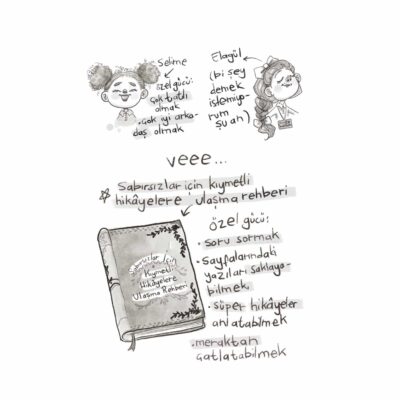 Selime
özel gücü:
çok tatlı
olmak
•çok iyi arka-
daş olmak
Elagül
(bi şey
demek
istemiyo-
rum
şu an)
veee...
Sabırsızlar için kıymetli
hikâyelere ulaşma rehberi
özel gücü:
• soru sormak
• Sayfalarındaki
yazıları saklaya-
bilmek
• süper hikâyeler
anlatabilmek
•meraktan
çatlatabilmek
Sabırsızlar için
Kıymetli
Hikâyelere
Ulaşma Rehberi